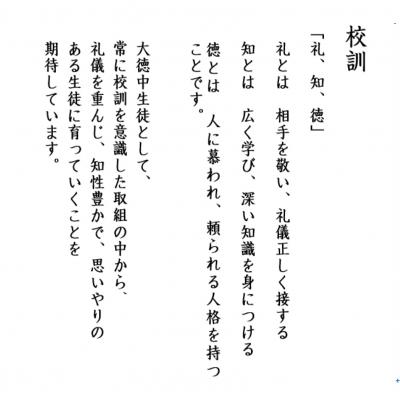 校訓
「礼、知、徳」
礼とは　相手を敬い、礼儀正しく接する
知とは　広く学び、深い知識を身につける
徳とは　人に慕われ、頼られる人格を持つ
ことです。
大徳中生徒として、
常に校訓を意識した取組の中から、
礼儀を重んじ、知性豊かで、思いやりの
ある生徒に育っていくことを
期待しています。